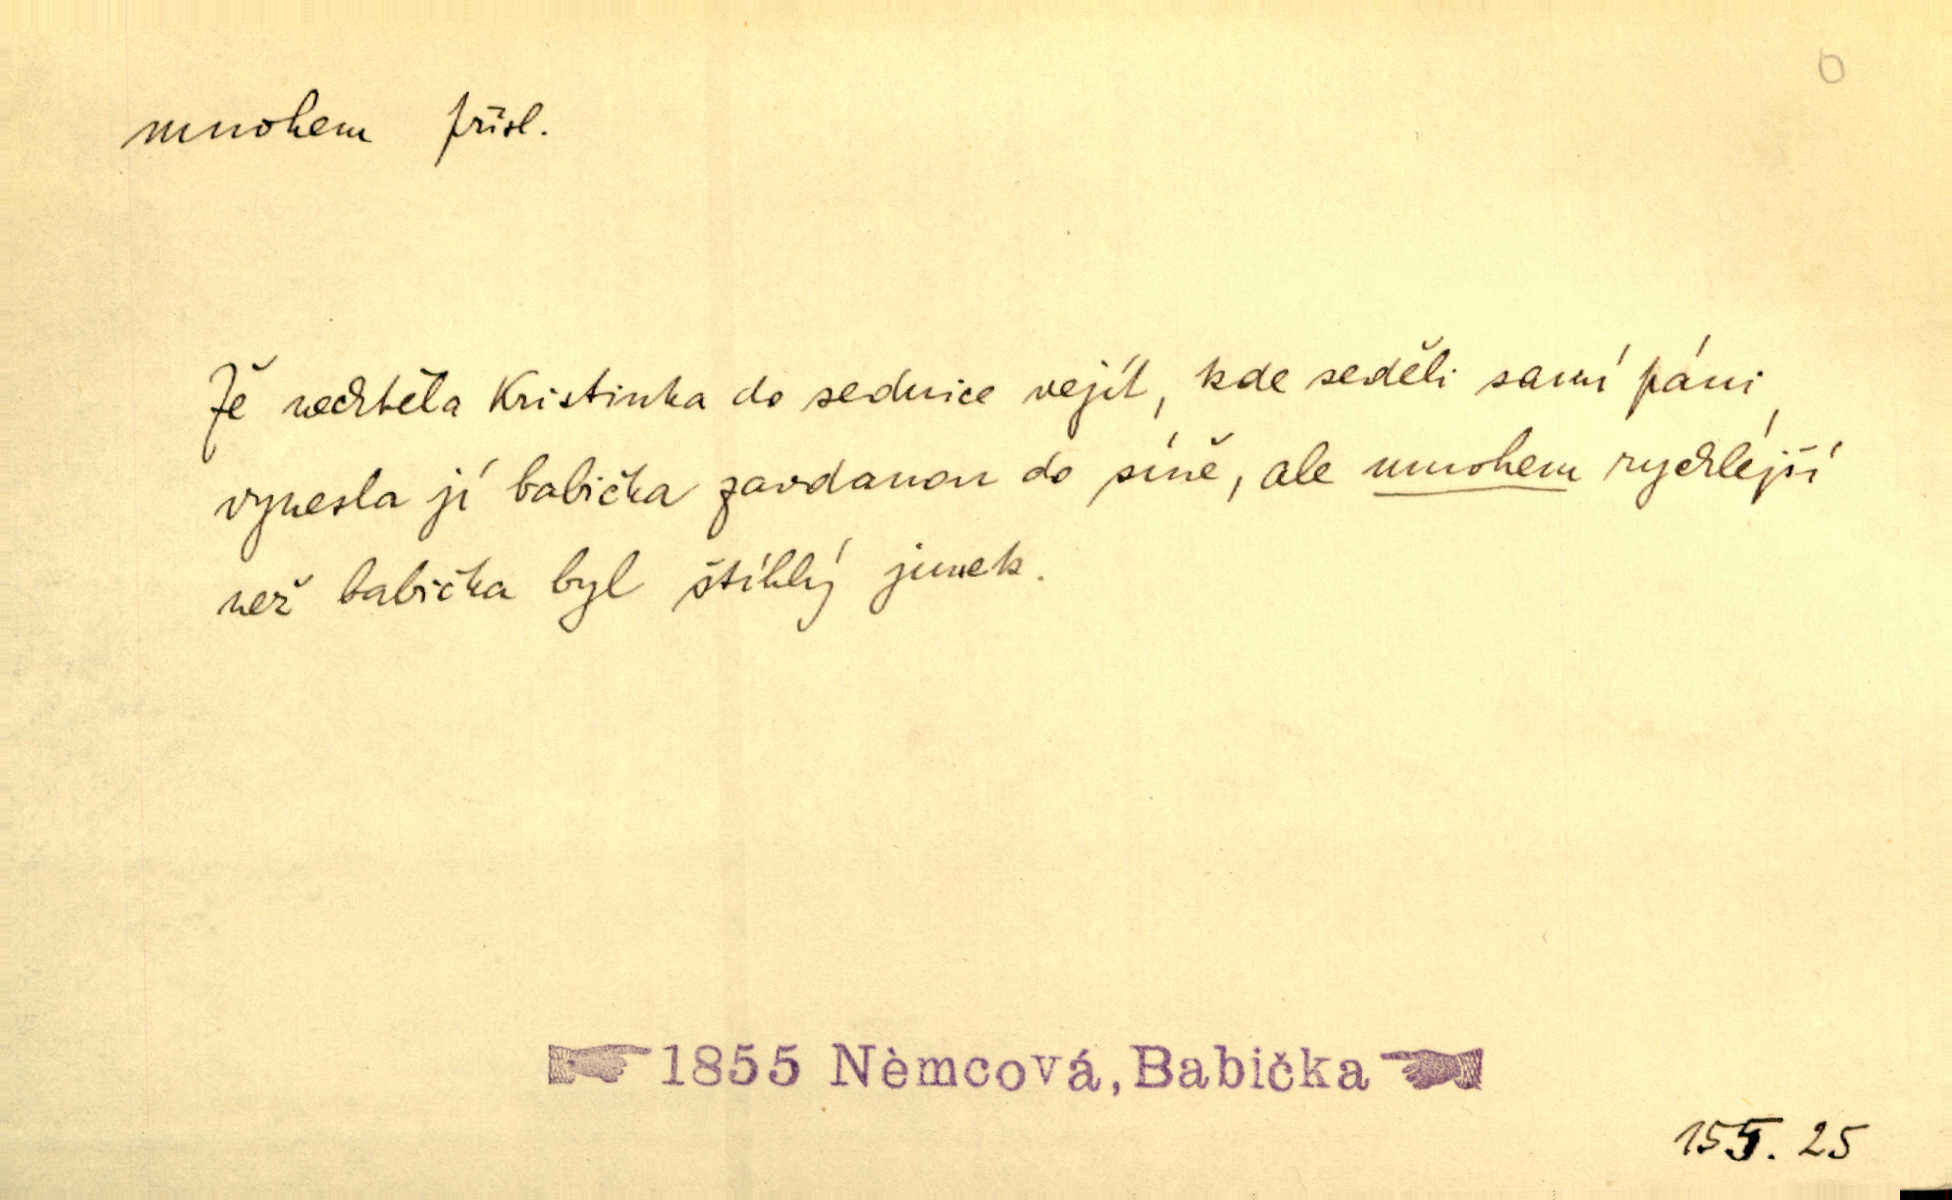 O
mnohem přísl.
Že nechtěla Kristinka do sednice vejít, kde seděli samí páni,
vynesla jí babička zavdanou do síně, ale mnohem rychlejší
než babička byl štíhlý junek.
1855 Němcová, Babička
155. 25